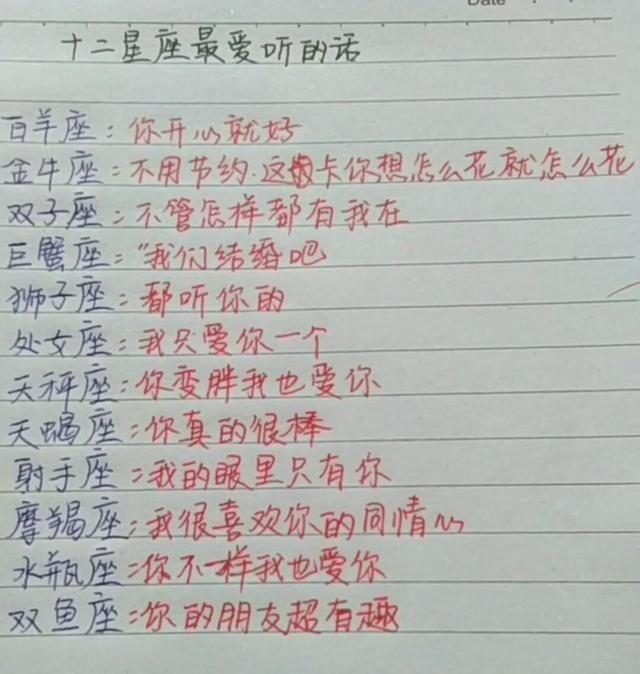 Date
十二星座最爱听的话
百羊座：你开心就好
金牛座：不用节约.这卡你想怎么花就怎么花
双子座：不管怎样都有我在
巨蟹座："我们结婚吧
狮子座：都听你的
处女座：我只爱你一个
天秤座：你变胖我也爱你
天蝎座：你真的很棒
射手座：我的眼里只有你
摩羯座：我很喜欢你的同情心
水瓶座：你不一样我也爱你
双鱼座：你的朋友超有趣